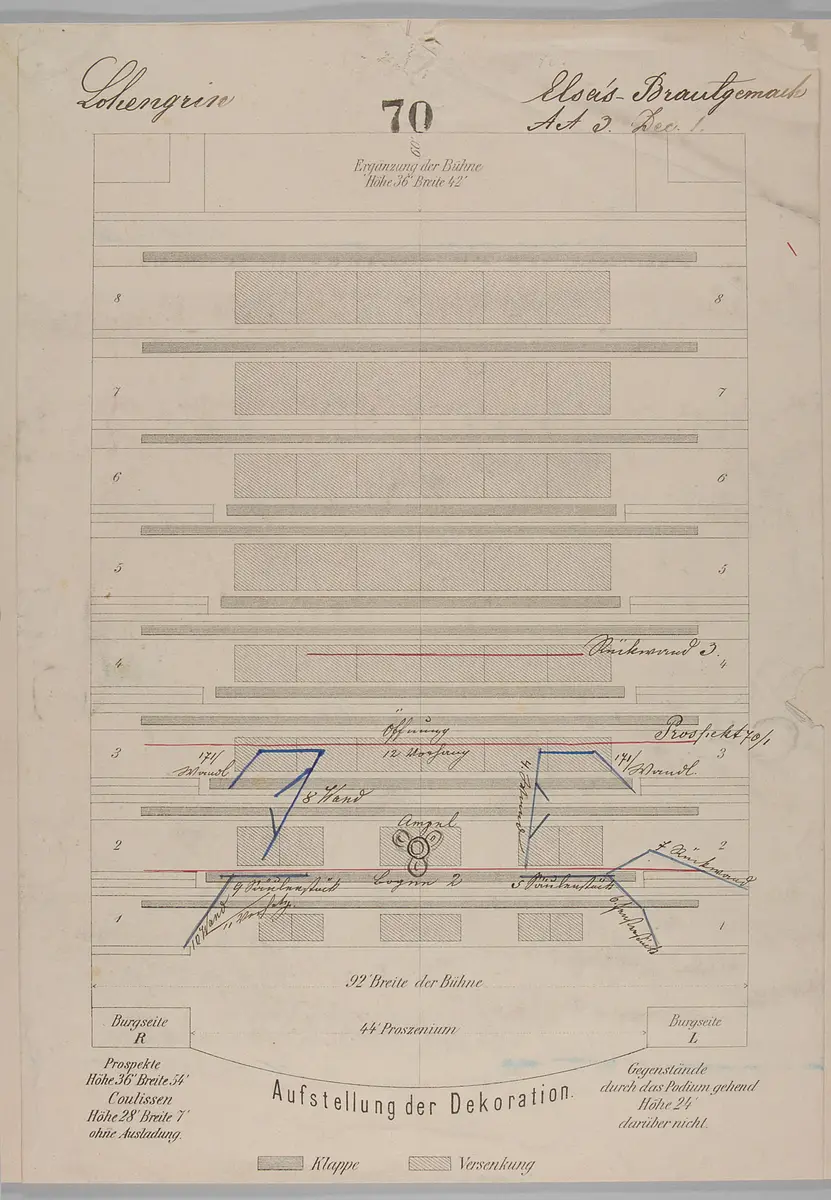 Lohengrin
70
Elsa's - Brautgemach
Akt 3. Dec. 1.
60'
Ergänzung der Bühne
Höhe 36' Breite 42'
8 8
7 7
6 6
5 5
Rückwand 3.
4 4
Öffnung
Prospekt 70/1
3 171/ Wandl.
12 Vorhang
171/ Wandl. 3
8 Wand
4
Ampel
2 2
7 Rückwand
9 Säulenstück
Bogen 2
5 Säulenstück
10 Wand
11 Vorsetz.
6 Fensterstück
1 1
92' Breite der Bühne
Burgseite
R
44' Proszenium
Burgseite
L
Prospekte
Höhe 36' Breite 54'
Coulissen
Höhe 28' Breite 7'
ohne Ausladung.
Aufstellung der Dekoration.
Gegenstände
durch das Podium gehend
Höhe 24'
darüber nicht.
Klappe Versenkung